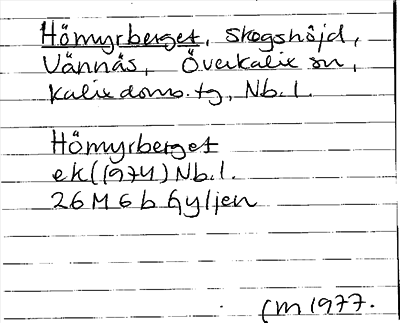 Hömyrberget, skogshöjd,
Vännäs, Överkalix sn,
Kalix doms. tg, Nb. l.
Hömyrberget
ek (1974) Nb. l.
26 M 6 b Gyljen
CM 1977.